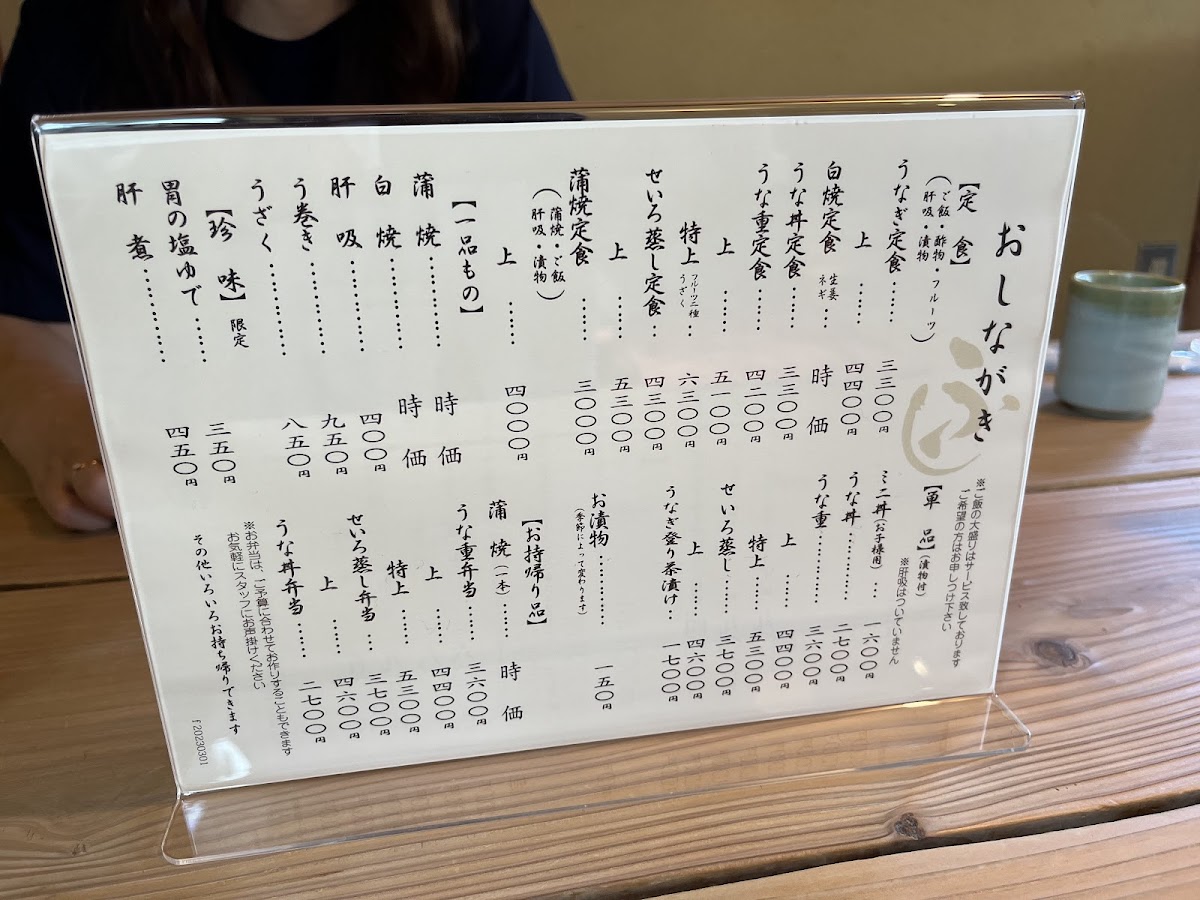 おしながき
【定食】
（ご飯・酢物・フルーツ
肝吸・漬物）
うなぎ定食……三三〇〇円
上……四四〇〇円
白焼定食 生姜ネギ…時価
うな丼定食……三三〇〇円
うな重定食……四二〇〇円
上……五一〇〇円
特上 フルーツ二種うざく…六三〇〇円
せいろ蒸し定食…四三〇〇円
上……五三〇〇円
蒲焼定食……三〇〇〇円
（蒲焼・ご飯
肝吸・漬物）
上……四〇〇〇円
【一品もの】
蒲焼…………時価
白焼…………時価
肝吸…………四〇〇円
う巻き…………九五〇円
うざく…………八五〇円
【珍味】限定
胃の塩ゆで……三五〇円
肝煮…………四五〇円
※ご飯の大盛りはサービス致しております
ご希望の方はお申しつけ下さい
【単品】（漬物付）
※肝吸はついていません
ミニ丼（お子様用）…一六〇〇円
うな丼…………二七〇〇円
うな重…………三六〇〇円
上……四四〇〇円
特上……五三〇〇円
せいろ蒸し……三七〇〇円
上……四六〇〇円
うなぎ登り茶漬け…一七〇〇円
お漬物…………一五〇円
（季節によって変わります）
【お持帰り品】
蒲焼（一本）……時価
うな重弁当……三六〇〇円
上……四四〇〇円
特上……五三〇〇円
せいろ蒸し弁当…三七〇〇円
上……四六〇〇円
うな丼弁当……二七〇〇円
※お弁当は、ご予算に合わせてお作りすることもできます
お気軽にスタッフにお声掛けください
その他いろいろお持ち帰りできます
f 20230301